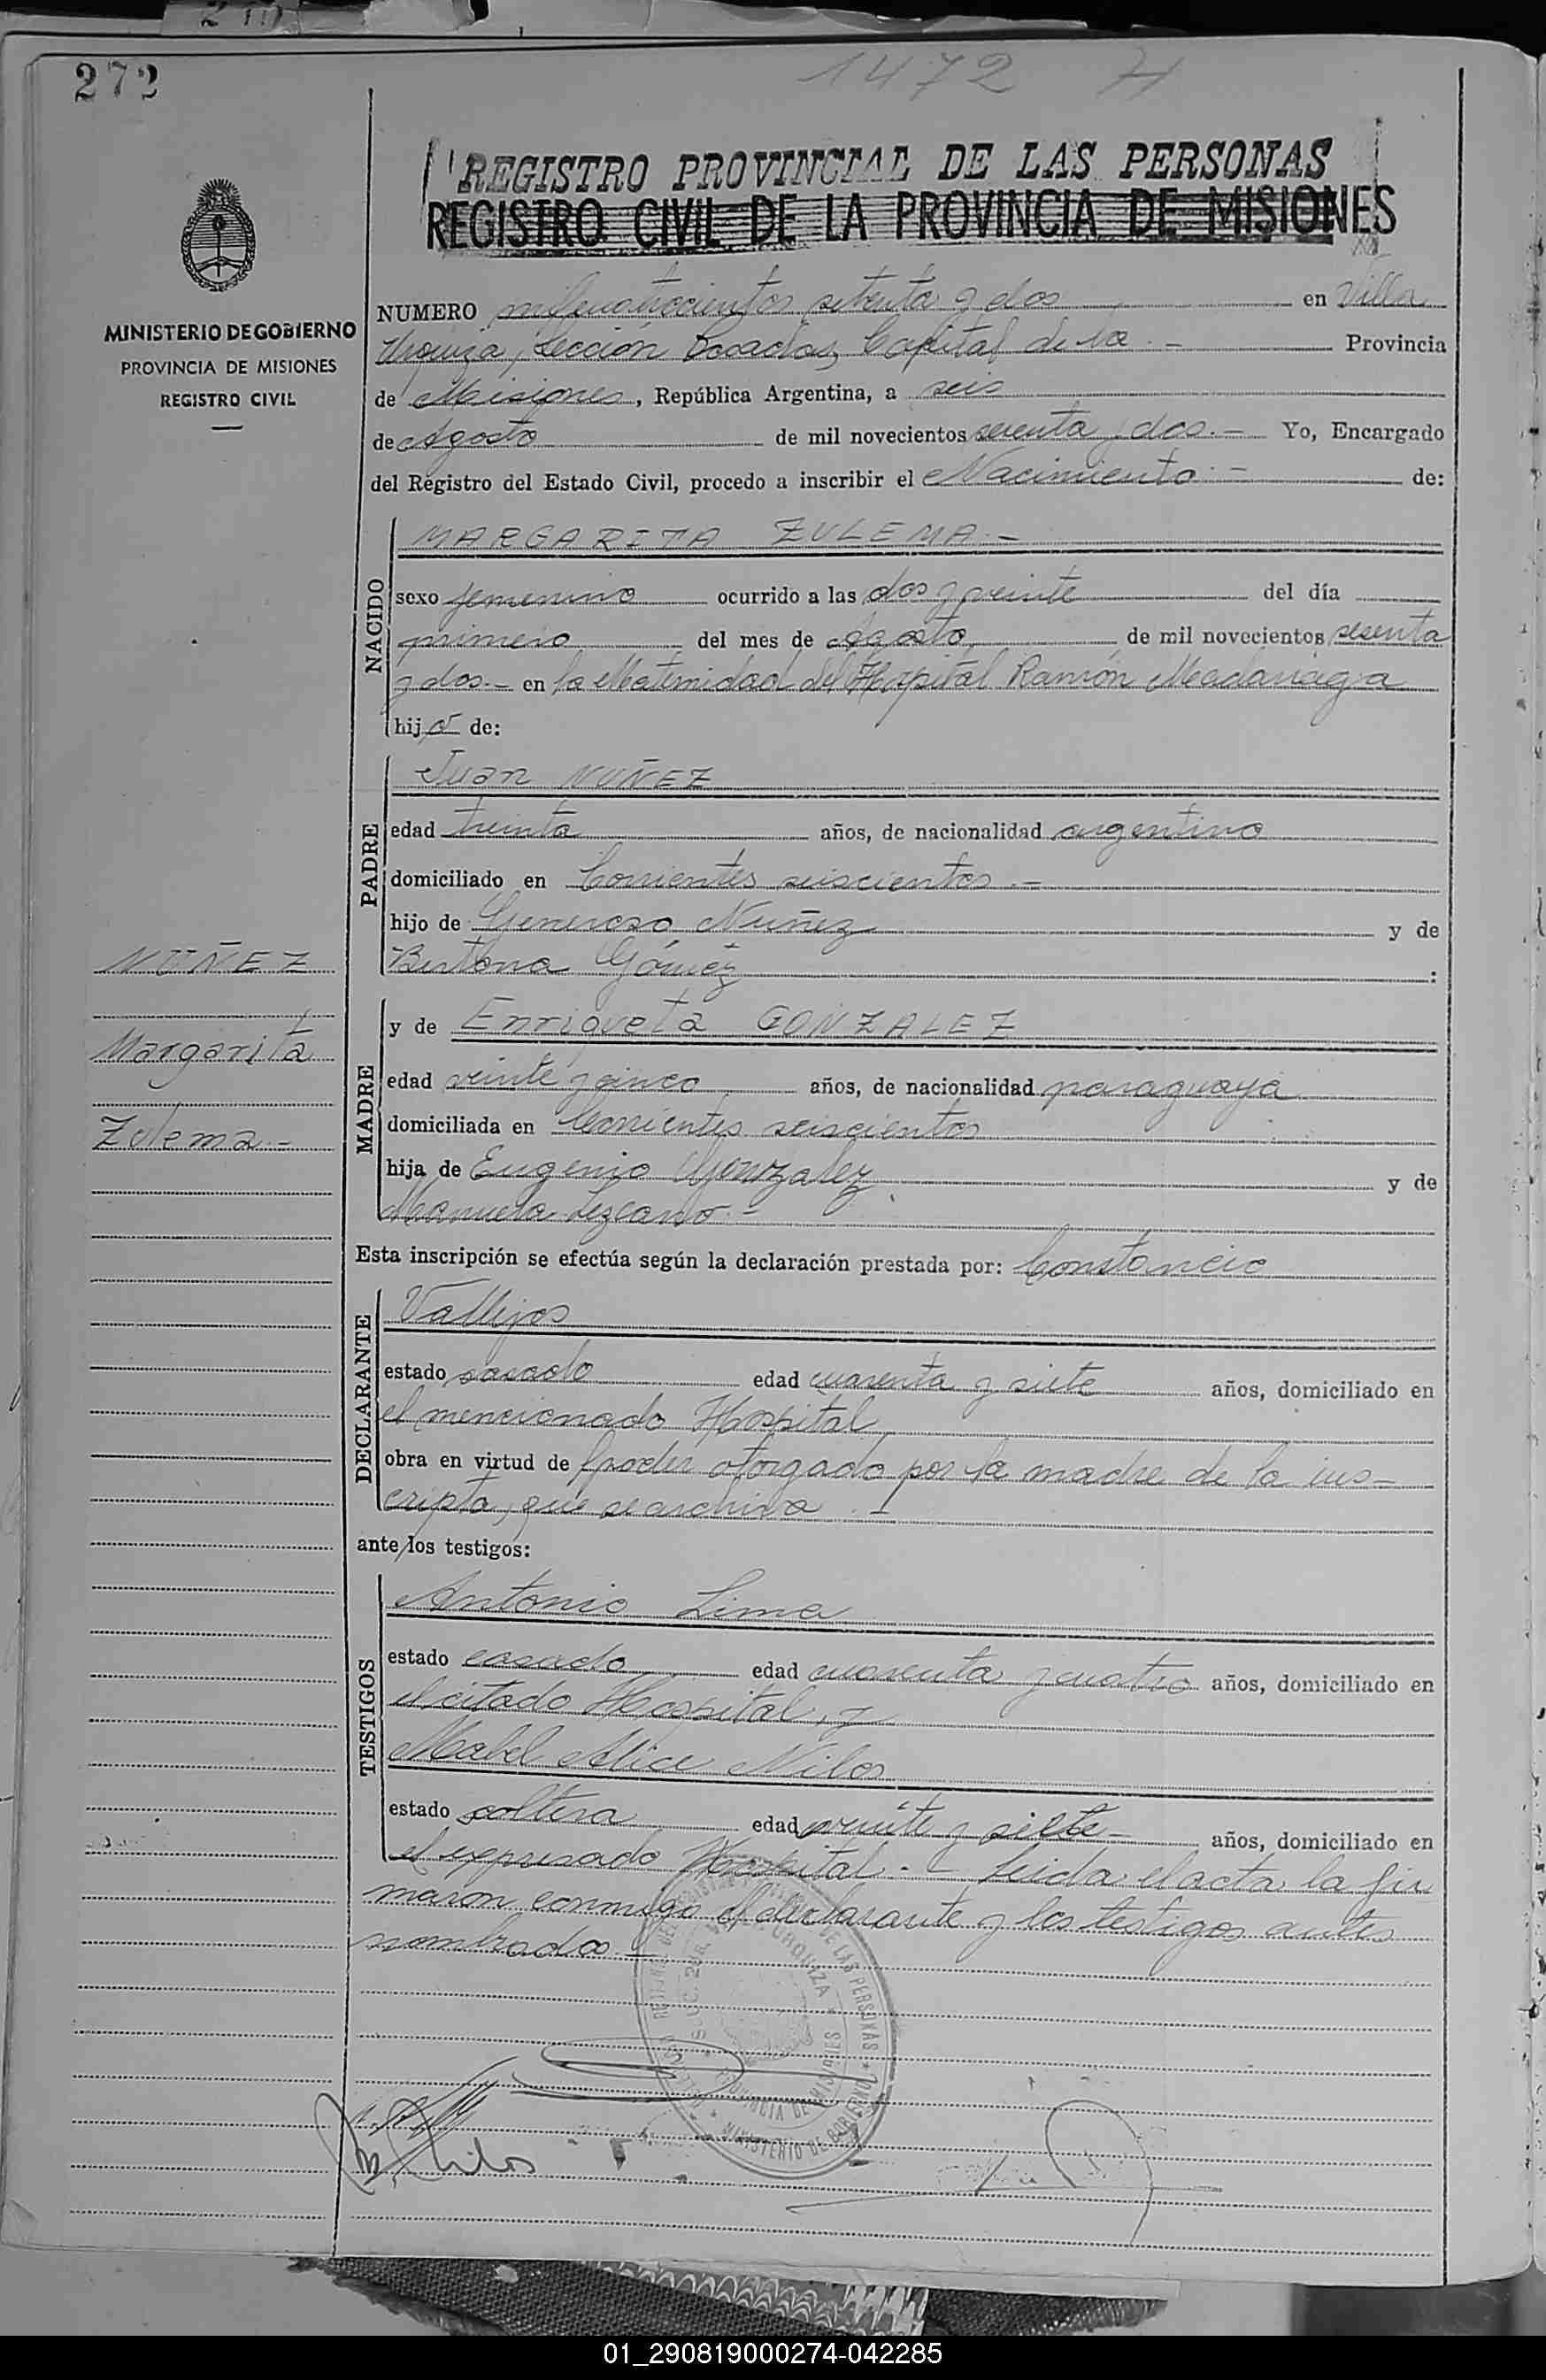 272
1472 H
REGISTRO PROVINCIAL DE LAS PERSONAS
REGISTRO CIVIL DE LA PROVINCIA DE MISIONES
MINISTERIO DE GOBIERNO
PROVINCIA DE MISIONES
REGISTRO CIVIL
NUMERO milcuatrocientos setenta y dos en Villa
Urquiza, Sección Posadas, Capital de la .- Provincia
de Misiones, República Argentina, a seis
de Agosto de mil novecientos sesenta y dos.- Yo, Encargado
del Registro del Estado Civil, procedo a inscribir el Nacimiento.- de:
NACIDO
MARGARITA ZULEMA.-
sexo femenino ocurrido a las dos y veinte del día
primero del mes de Agosto de mil novecientos sesenta
y dos.- en la Maternidad del Hospital Ramón Madariaga
hija de:
PADRE
Juan NUÑEZ
edad treinta años, de nacionalidad argentino
domiciliado en Corrientes seiscientos.-
hijo de Generoso Nuñez y de
Gómez :
NUÑEZ
Margarita
Zulema.-
MADRE
y de Enriqueta GONZALEZ
edad veinte y cinco años, de nacionalidad paraguaya
domiciliada en Corrientes seiscientos
hija de Eugenio Gonzalez y de
Manuela Lezcano.-
Esta inscripción se efectúa según la declaración prestada por: Constancio
DECLARANTE
Vallejos
estado casado edad cuarenta y siete años, domiciliado en
el mencionado Hospital
obra en virtud de poder otorgado por la madre de la ins-
cripta, que se archiva.-
ante los testigos:
TESTIGOS
Antonio Lima
estado casado edad cuarenta y cuatro años, domiciliado en
el citado Hospital, y
Mabel Alice Nilos
estado soltera edad veinte y siete- años, domiciliado en
el expresado Hospital.- Leida el acta la fir
maron conmigo el declarante y los testigos antes
nombrados.-
01_290819000274-042285